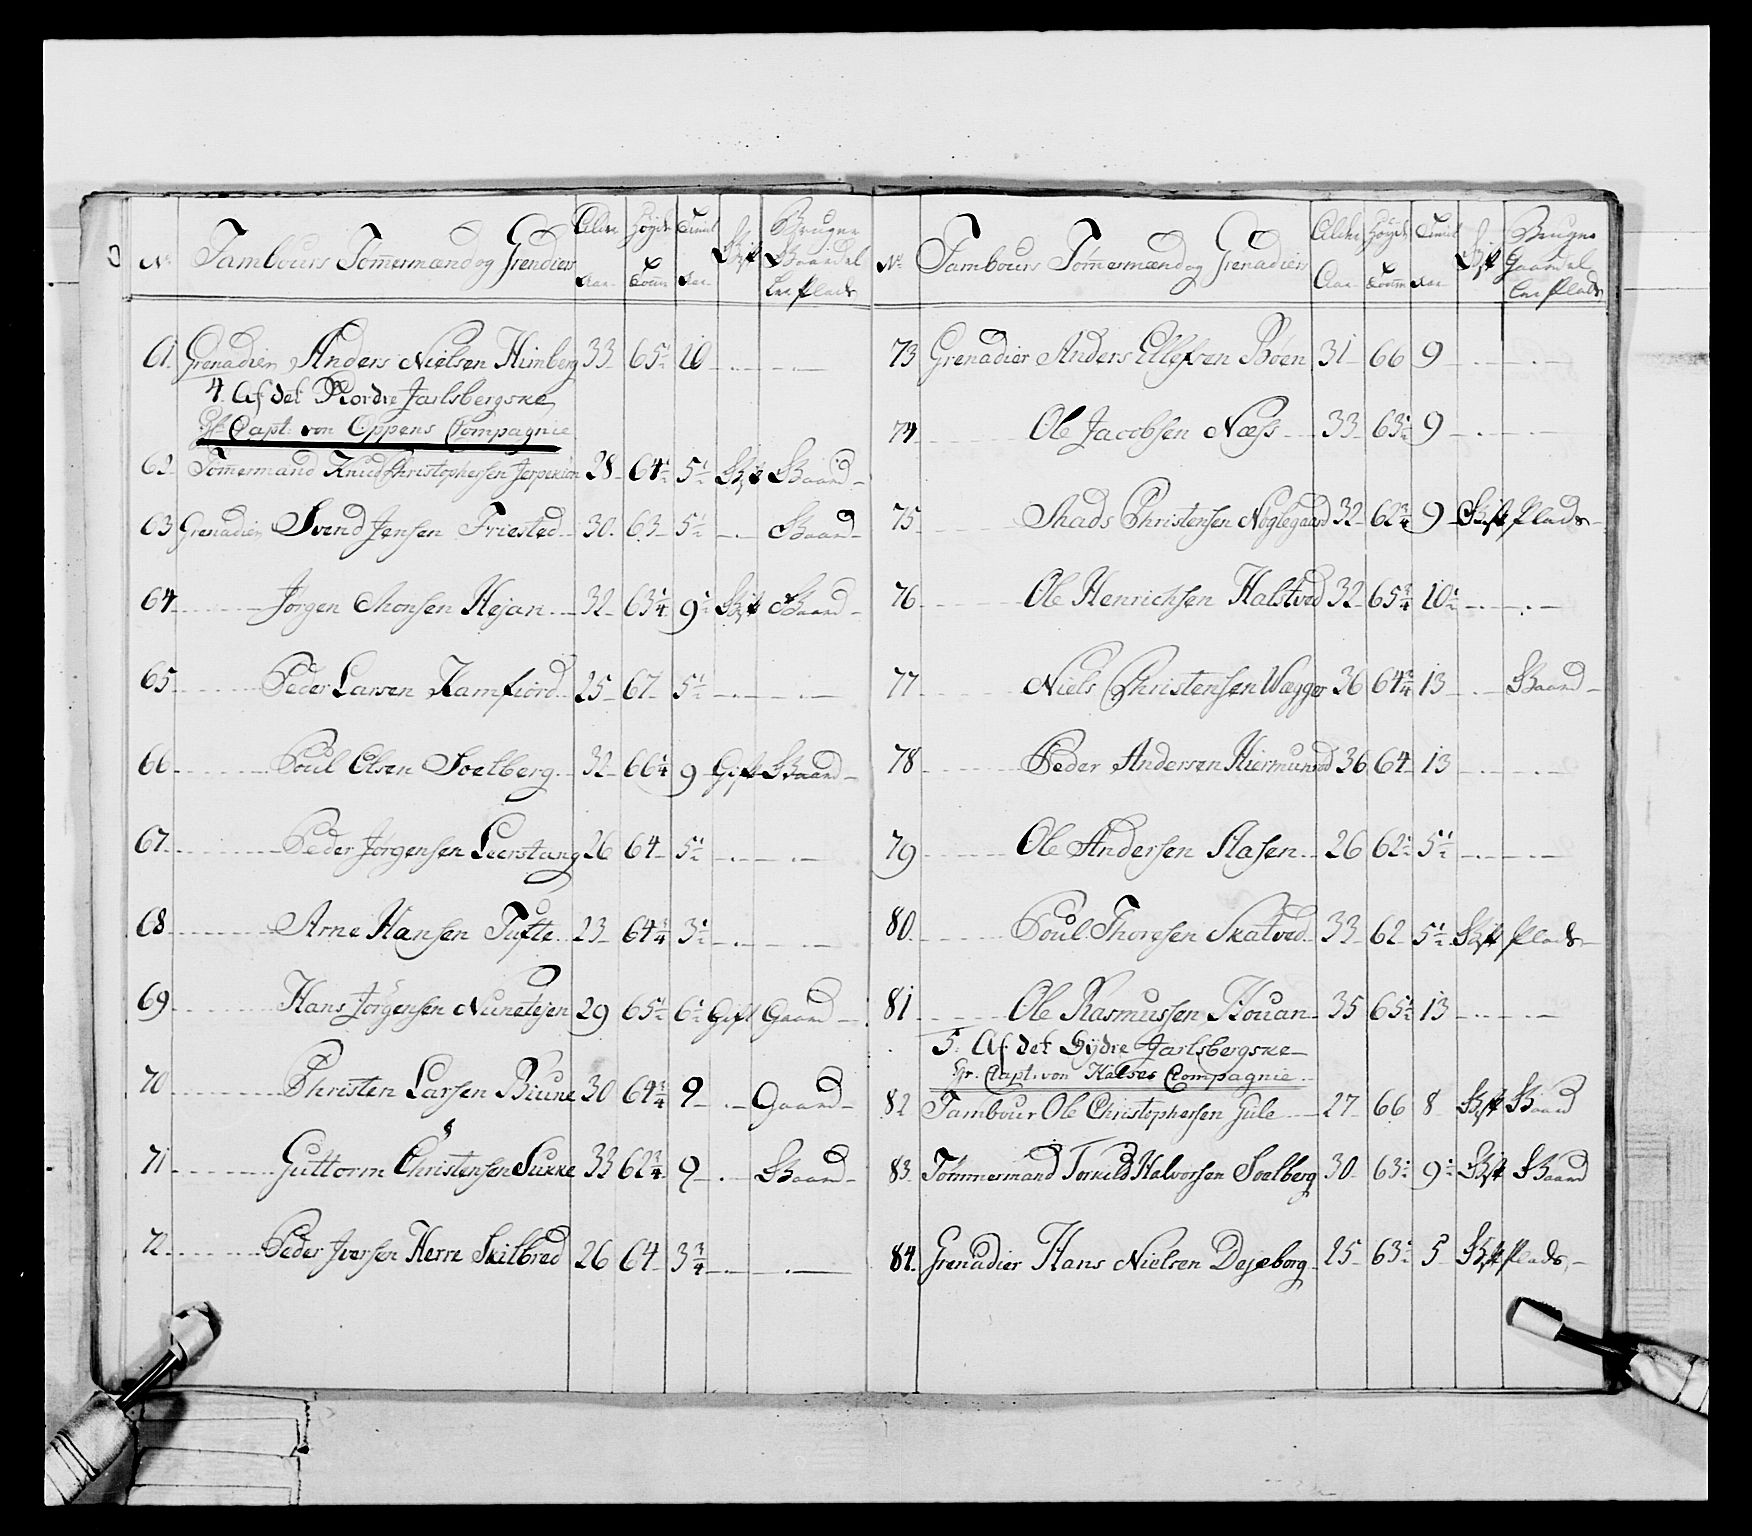 No Tambours Tom̄ermænd og Grendiers Alder Aar Høyde Tom̄ Tienist Aar Gift Bruger Gaard el ler Plads
61 Grenadier Anders Nielsen Himberg 33 65½ 10 - -
4. Af det Nordre Jarlsbergske
Gr. Capt: von Oppens Compagnie
62 Tom̄ermand Knud Christophersen 28 64½ 5½ Gift Gaard
63 Grenadier Svend Jensen Friested 30 63 5½ - Gaard
64 Jørgen Monsen Hejan 32 63¼ 9½ Gift Gaard
65 Peder Larsen Kamfiord 25 67 5½ - -
66 Poul Olsen Soelberg 32 66¼ 9 Gift Gaard
67 Peder Jørgensen Leerstang 26 64 5½ - -
68 Arne Hansen Tufte 23 64¾ 3½ - -
69 Hans Jørgensen 29 65½ 6½ Gift Gaard
70 Christen Larsen Biune 30 64¾ 9 - Gaard
71 Guttorm Christensen Sukke 33 62¾ 9 - Gaard
72 Peder Iversen Herre Skilbred 26 64 3¾ - -
No Tambours Tom̄ermænd og Grenadiers Alder Aar Høyde Tom̄ Tienist Aar Gift Bruger Gaard el ler Plads
73 Grenadier Anders Ellefsen Bøen 31 66 9 - -
74 Ole Jacobsen Næss 33 63½ 9 - -
75 Mads Christensen Nøglegaard 32 62¾ 9 Gift Plads
76 Ole Henrichsen Halstved 32 65¾ 10½ - -
77 Niels Christensen Vægger 36 64¾ 13 - Gaard
78 Peder Andersen Hiermunrod 36 64 13 - -
79 Ole Andersen Aasen 26 62½ 5½ - -
80 Poul Thoresen Skatved 33 62 5½ Gift Plads
81 Ole Rasmussen Kouan 35 65½ 13 - -
5. Af det Sydre Jarlsbergske
Gr. Capt. von Kalses Compagnie
82 Tambour Ole Christophersen Gule 27 66 8 Gift Gaard
83 Tømmermand Torkild Halvorsen Soelberg 30 63½ 9½ Gift Gaard
84 Grenadier Hans Nielsen Dejeborg 25 63½ 5 Gift Plads